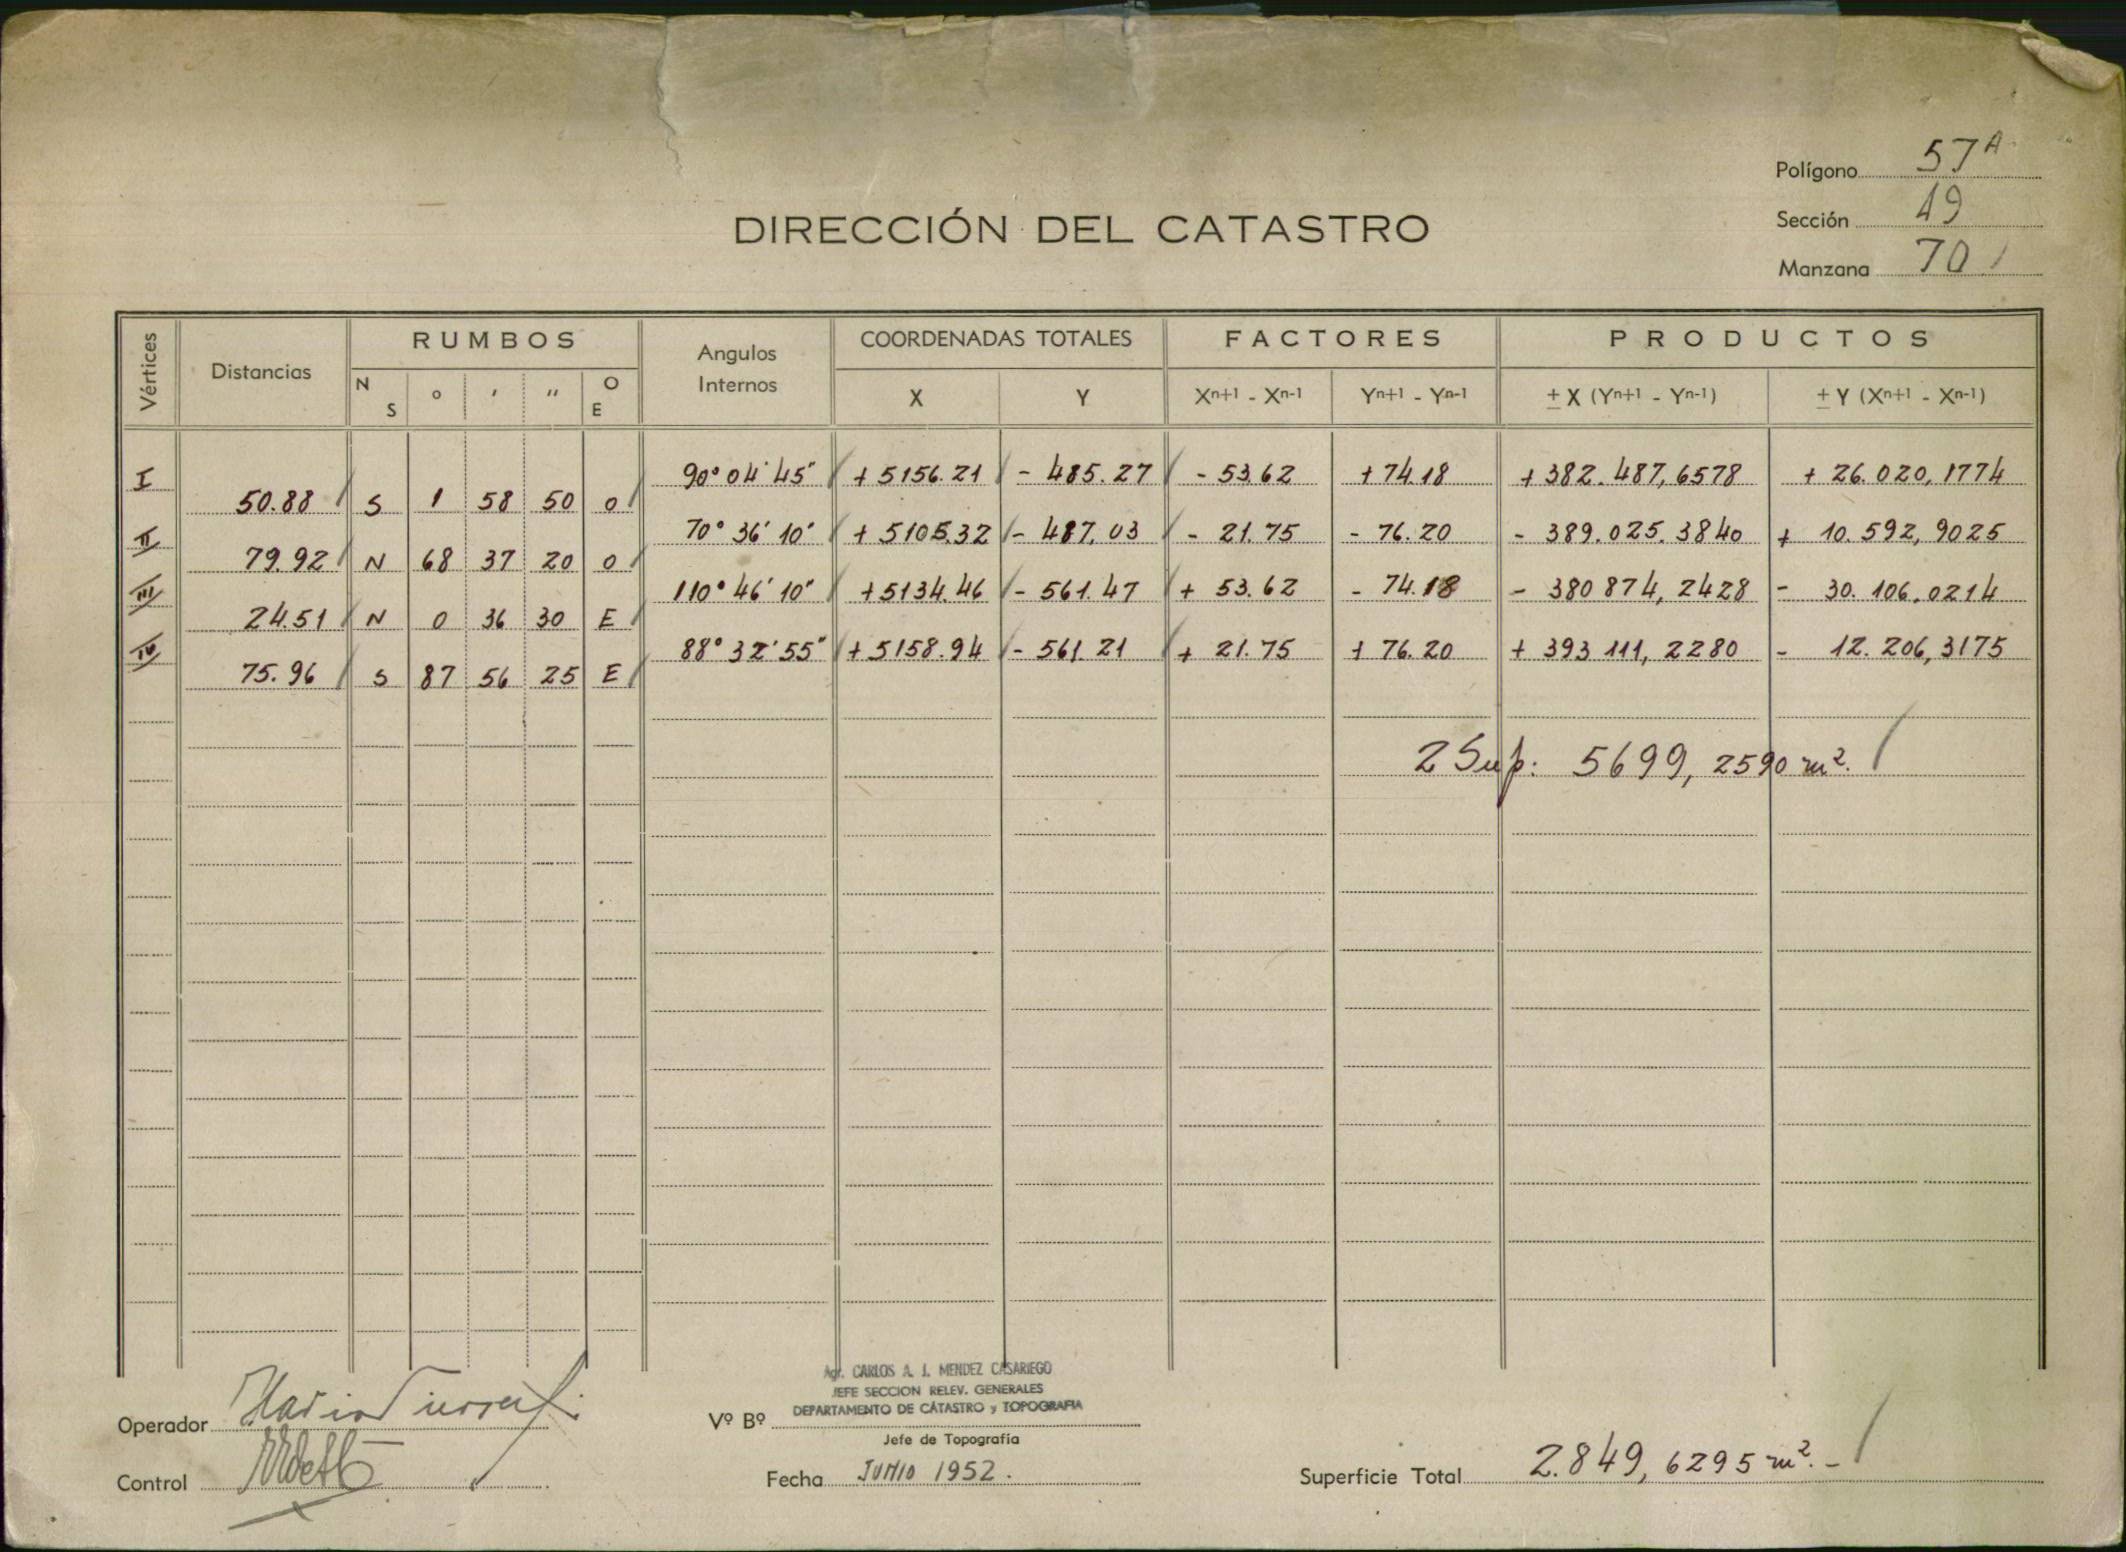 Polígono 57A
Sección 49
Manzana 70
DIRECCIÓN DEL CATASTRO
Vértices Distancias RUMBOS Angulos Internos COORDENADAS TOTALES FACTORES PRODUCTOS
N S ° ' " O E X Y Xn+1 - Xn-1 Yn+1 - Yn-1 ± X (Yn+1 - Yn-1) ± Y (Xn+1 - Xn-1)
I 90° 04' 45" + 5156.21 - 485.27 - 53.62 + 74.18 + 382.487,6578 + 26.020,1774
50.88 S 1 58 50 O
II 70° 36' 10" + 5105.32 - 487.03 - 21.75 - 76.20 - 389.025.3840 + 10.592,9025
79.92 N 68 37 20 O
III 110° 46' 10" + 5134.46 - 561.47 + 53.62 - 74.18 - 380 874,2428 - 30.106,0214
24.51 N 0 36 30 E
IV 88° 32' 55" + 5158.94 - 561.21 + 21.75 + 76.20 + 393 111,2280 - 12.206,3175
75.96 S 87 56 25 E
2 Sup: 5699,2590 m2.
Agr. CARLOS A. J. MENDEZ CASARIEGO
JEFE SECCION RELEV. GENERALES
DEPARTAMENTO DE CATASTRO y TOPOGRAFIA
Operador
Vº Bº
Jefe de Topografía
Control
Fecha JUNIO 1952.
Superficie Total 2.849,6295 m2.-